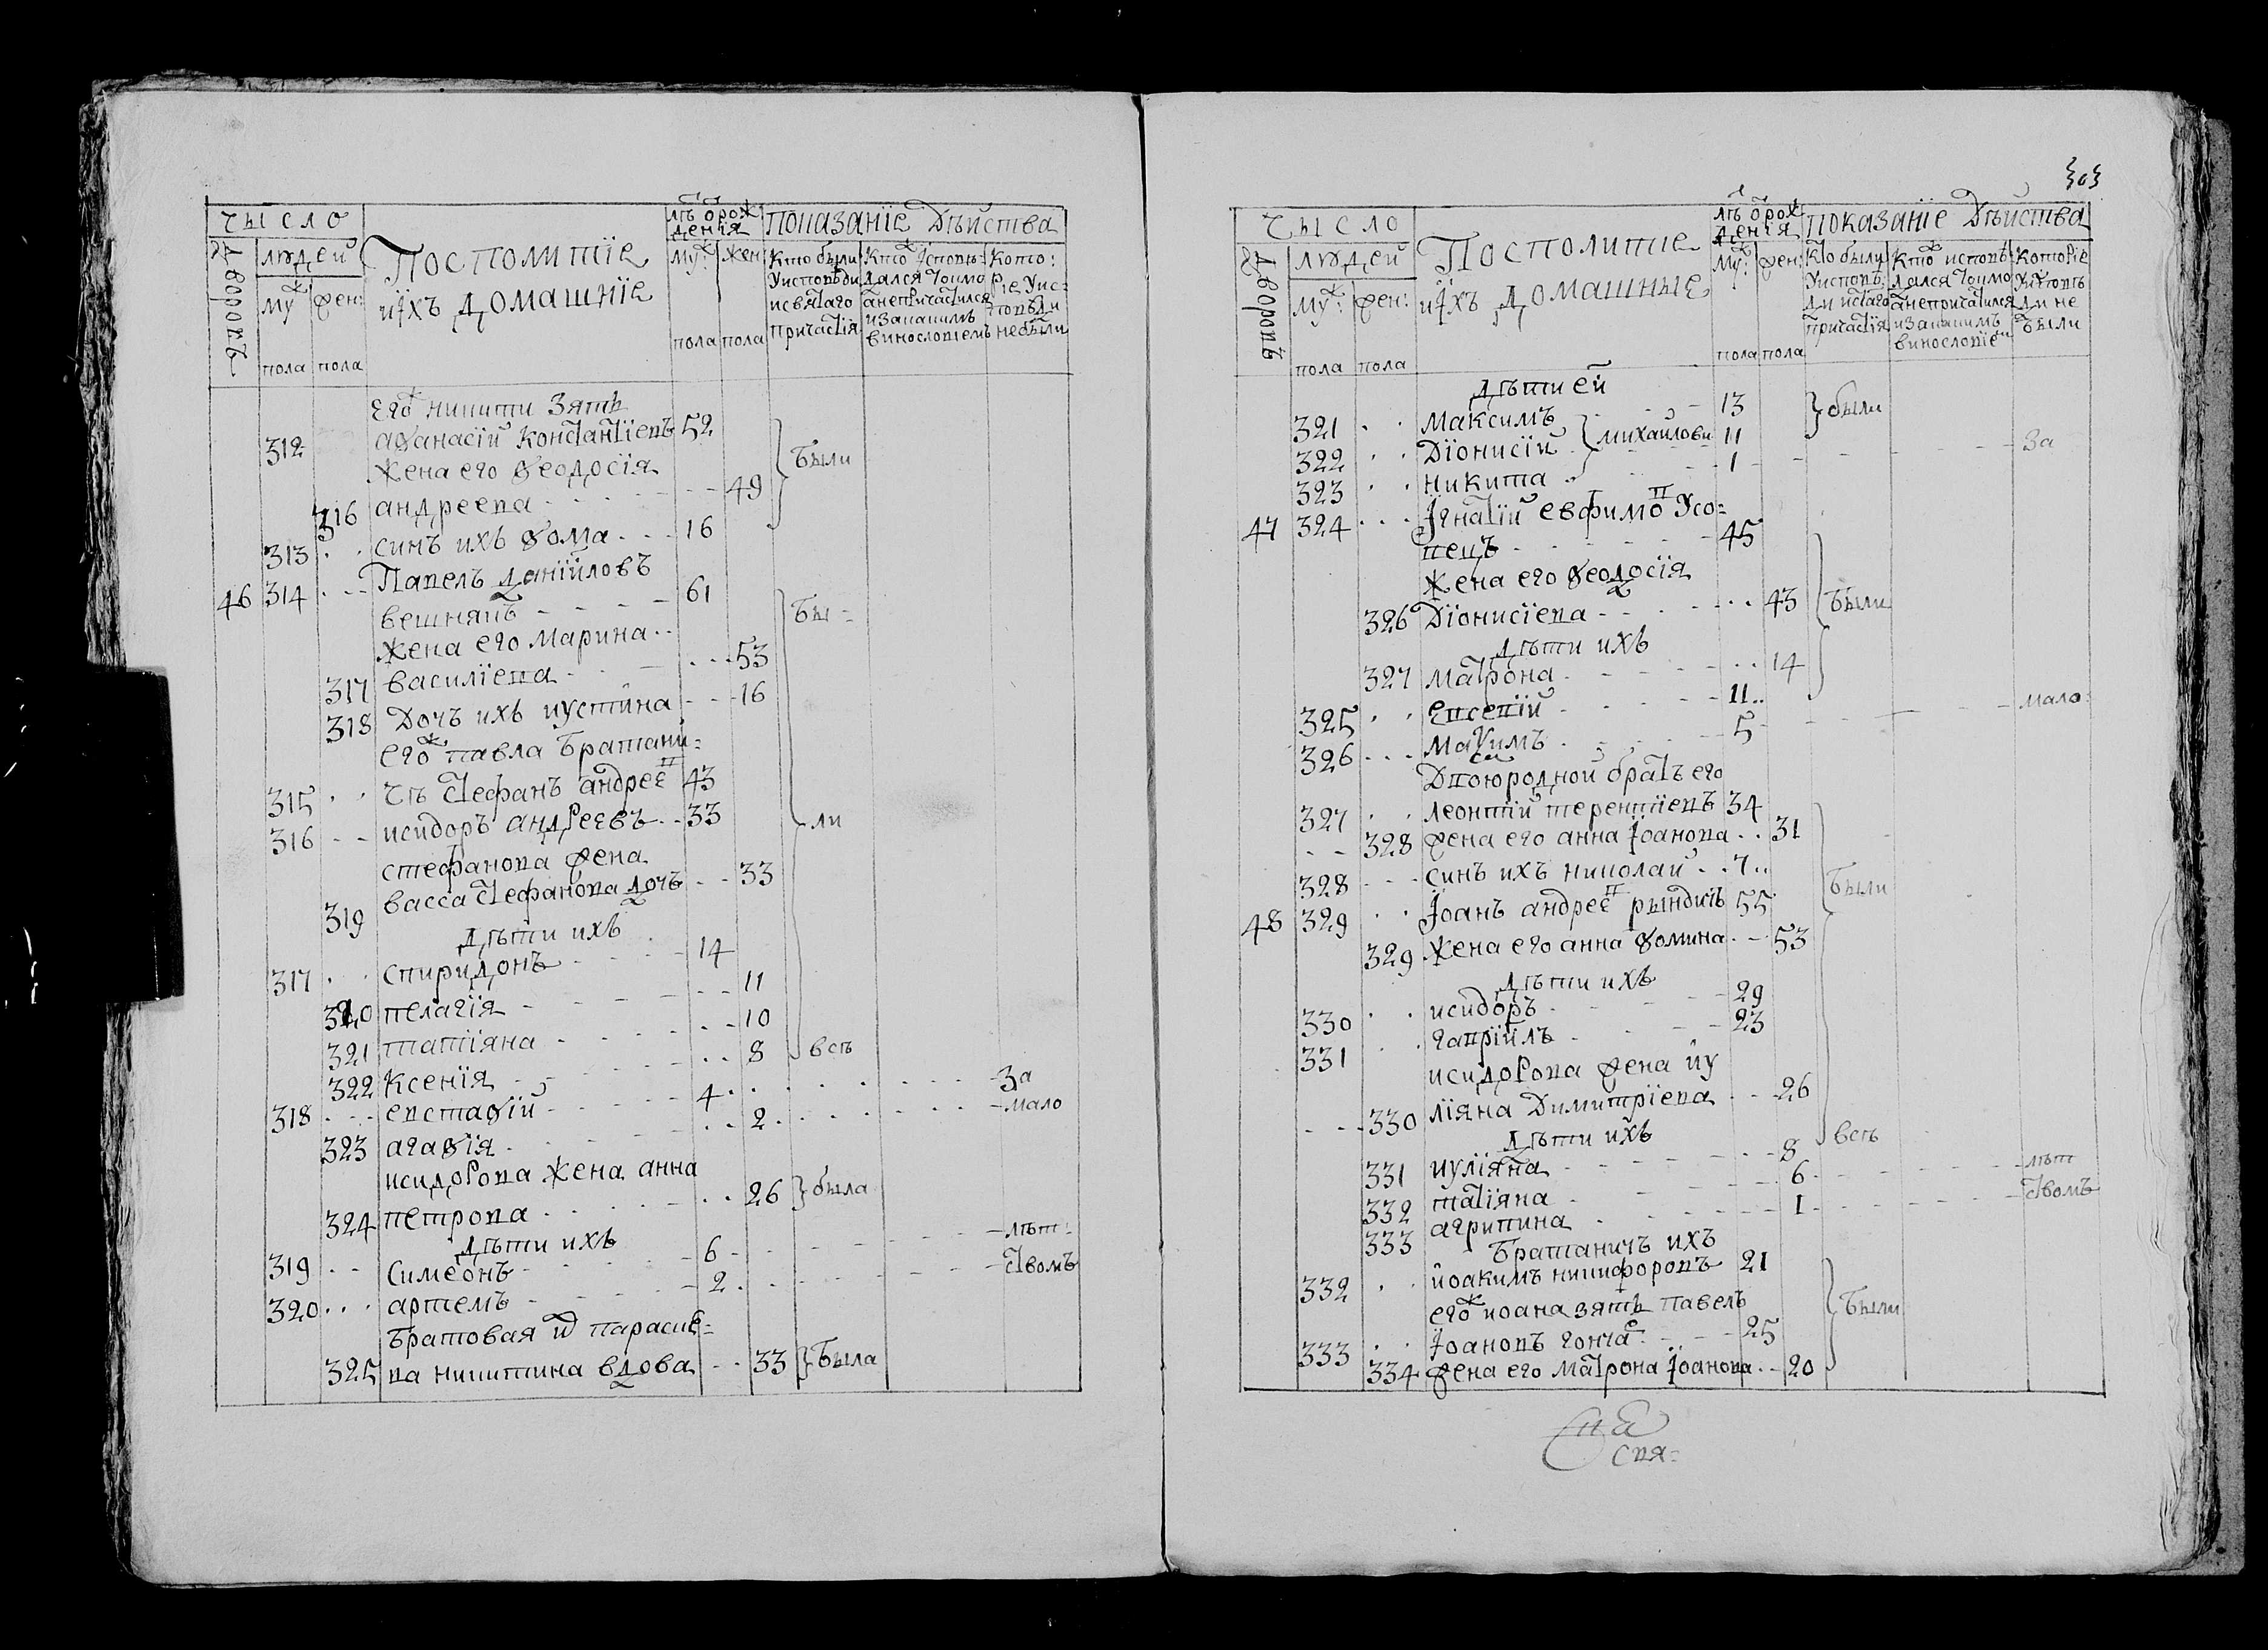 число
Дворовъ
людей
муж: пола
жен: пола
Посполитіе
ихъ домашніе
лѣтъ от рожденія
муж: пола
жен: пола
Показаніе Дѣйства
Кто были
у исповѣди
и святаго
причастія
Кто исповѣ-
дался токмо
а не причастился
и за какимъ
винословіемъ
Кото:
ріе у ис-
повѣди
не были
его ж никити зять
312 афанасій константіевъ 52
жена его феодосія
316 андреева 49
были
313 синъ ихъ фома 16
46 314 Павелъ даніиловъ
вешнякъ 61
бы-
жена его марина
317 василіева 53
318 Дочъ ихъ иустина 16
его ж павла братани-
315 чъ стефанъ андреев 43
316 исидоръ андреевъ 33
ли
стефанова жена
319 васса стефанова дочъ 33
дѣти ихъ
317 спиридонъ 14
320 пелагія 11
321 татіяна 10
322 ксенія 8
всѣ
318 евстафій 4 за
323 агафія 2 мало
исидорова жена анна
324 петрова 26 была
дѣти ихъ
319 симеонъ 6 лѣт:
320 артемъ 2 ствомъ
братовая их параске-
325 ва никитина вдова 33 была
303
число
Дворовъ
людей
муж: пола
жен: пола
Посполитие
ихъ домашние
лѣтъ от рожденія
муж: пола
жен: пола
Показаніе Дѣйства
Кто были
у исповѣ:
ди и стаго
причастія
Кто исповѣ
дался токмо
а не причатился
и за какимъ
винословіем
Которіе
у испов
ди не
были
дѣти ей
321 максимъ 13
322 Діонисій михайлови 11
были
323 никита 1 за
47 324 Ігнатій евфимов Усо-
вецъ 45
жена его феодосія
326 Діонисіева 43
были
дѣти ихъ
327 матрона 14
325 евсевій 11
326 маѯимъ 5 мало:
Двоюродной братъ его
327 леонтій терентіевъ 34
328 жена его анна Іоанова 31
328 синъ ихъ николай 7
были
48 329 Іоанъ андреев рындичъ 55
329 жена его анна фомина 53
дѣти ихъ
330 исидоръ 29
331 гавріилъ 23
исидорова жена иу
330 ліяна Димитріева 26
всѣ
дѣти ихъ
331 иуліяна 8
332 татіяна 6 лѣт
333 агрипина 1 ствомъ
братаничъ ихъ
332 іоакимъ никифоровъ 21
его ж иоана зять павелъ
333 Іоановъ гончар 25
были
334 жена его матрона Іоанова 20